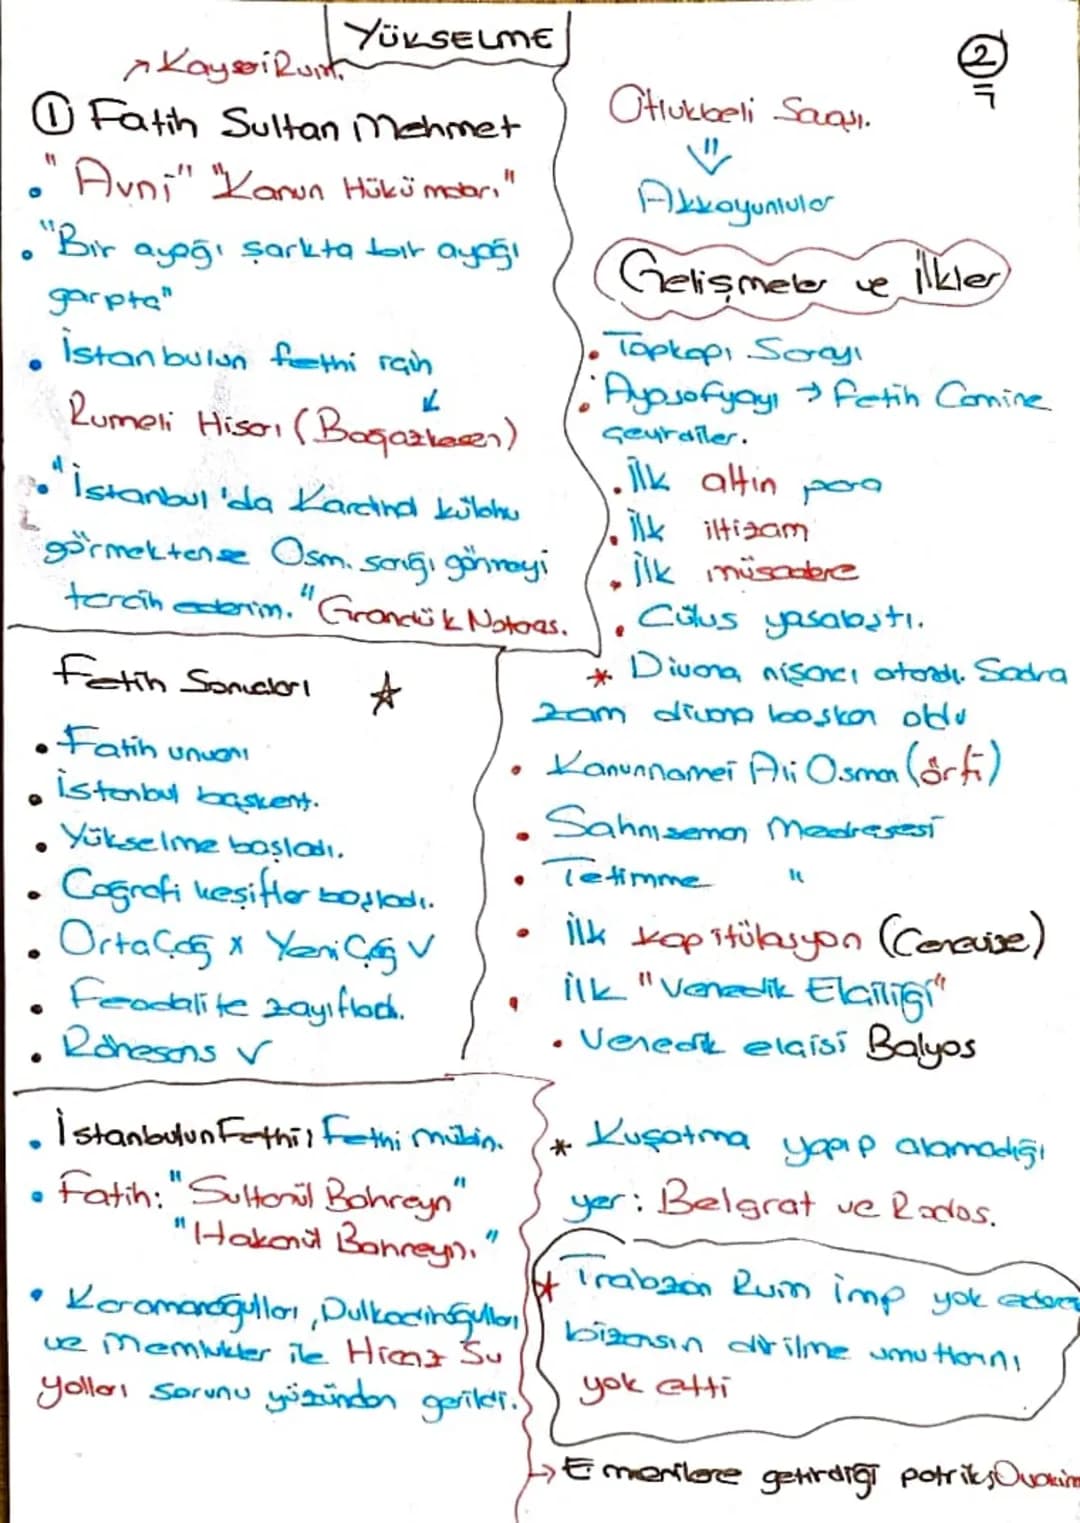 YÜKSELME
2
7
→ Kayseri Rum.
① Fatih Sultan Mehmet
• "Avni" "Kanun Hükümdarı"
• "Bir ayağı şarkta bir ayağı
garpta"
• İstanbulun fethi için
Rumeli Hisarı (Boğazkesen)
• "İstanbul'da Kardinal külahı
görmektense Osm. sarığı görmeyi
tercih ederim." Grandük Notaras.
Fetih Sonuçları ☆
• Fatih unvanı
• İstanbul başkent.
• Yükselme başladı.
• Coğrafi keşifler başladı.
• Orta Çağ x Yeni Çağ ✓
• Feodalite zayıfladı.
• Rönesans ✓
• İstanbulun Fethi: Fethi mübin.
• Fatih: "Sultanül Bahreyn"
"Hakanül Bahreyn."
• Karamanoğulları, Dulkadiroğulları
ve Memlükler ile Hicaz Su
yolları sorunu yüzünden gerildi.
Otlukbeli Savaşı.
⇓
Akkoyunlular
Gelişmeler ve İlkler
• Topkapı Sarayı
• Ayasofyayı → Fetih Camine
çevirdiler.
• İlk altın para
• İlk iltizam
• İlk müsadere
• Cülus yasalaştı.
* Divana nişancı atandı. Sadra
zam divana başkan oldu
• Kanunnamei Ali Osman (örfi)
• Sahnıseman Medresesi
• Tetimme "
• İlk kapitülasyon (Ceneviz)
• İlk "Venedik Elçiliği"
• Venedik elçisi Balyos
* Kuşatma yapıp alamadığı
yer: Belgrat ve Rodos.
* Trabzon Rum imp yok ederek
bizansın dirilme umutlarını
yok etti
→ Ermenilere getirdiği patrik; Ovakim